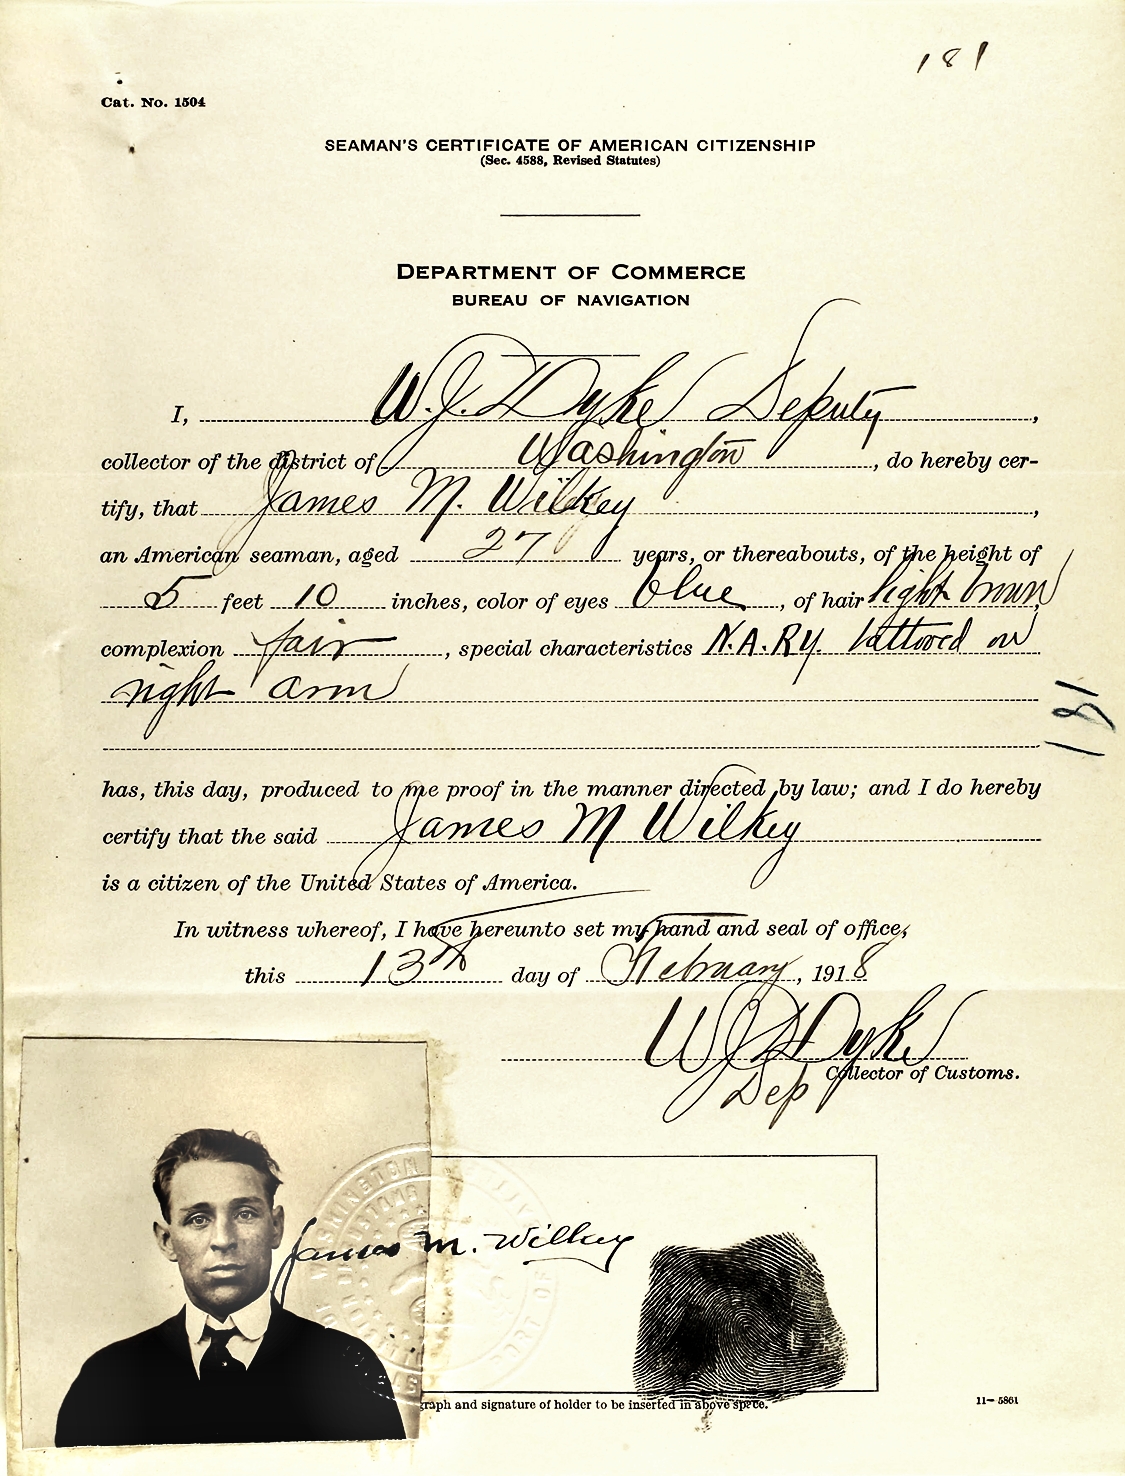 181
Cat. No. 1504
SEAMAN'S CERTIFICATE OF AMERICAN CITIZENSHIP
(Sec. 4588, Revised Statutes)
DEPARTMENT OF COMMERCE
BUREAU OF NAVIGATION
I, W. J. Dyke Deputy,
collector of the district of Washington, do hereby cer-
tify, that James M. Wilkey,
an American seaman, aged 27 years, or thereabouts, of the height of
5 feet 10 inches, color of eyes blue, of hair light brown,
complexion fair, special characteristics N.A.RY. tattooed on
right arm
181
has, this day, produced to me proof in the manner directed by law; and I do hereby
certify that the said James M Wilkey
is a citizen of the United States of America.
In witness whereof, I have hereunto set my hand and seal of office,
this 13th day of February, 1918
W J Dyke
Dep Collector of Customs.
James M. Wilkey
graph and signature of holder to be inserted in above space.
11-5861